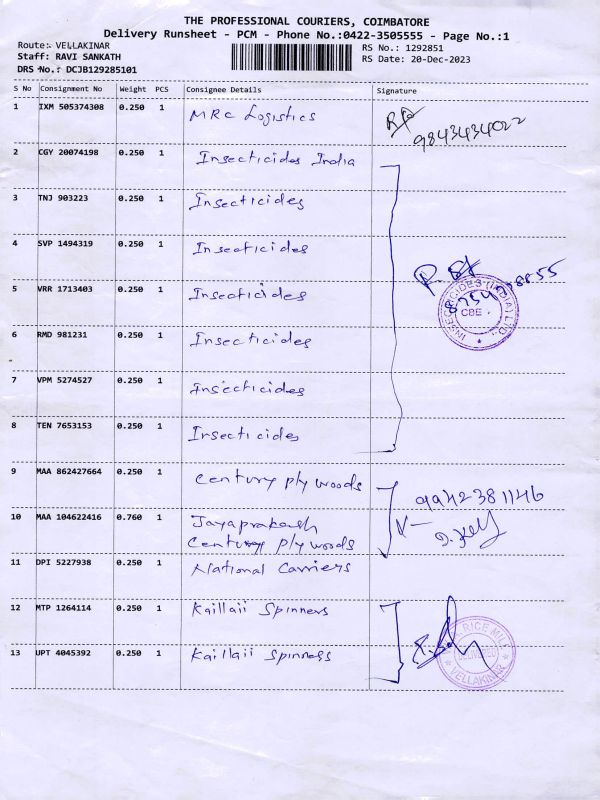 THE PROFESSIONAL COURIERS, COIMBATORE
Delivery Runsheet - PCM - Phone No.:0422-3505555 - Page No.:1
Route: VELLAKINAR
RS No.: 1292851
Staff: RAVI SANKATH
RS Date: 20-Dec-2023
DRS No.: DCJB129285101
S No Consignment No Weight PCS Consignee Details Signature
1 IXM 505374308 0.250 1 MRC Logistics
9843434022
2 CGY 20074198 0.250 1 Insecticides India
3 TNJ 903223 0.250 1 Insecticides
4 SVP 1494319 0.250 1 Insecticides
5 VRR 1713403 0.250 1 Insecticides
INSECTICIDES (INDIA) LTD.
CBE.
6 RMD 981231 0.250 1 Insecticides
7 VPM 5274527 0.250 1 Insecticides
8 TEN 7653153 0.250 1 Insecticides
9 MAA 862427664 0.250 1 Century ply woods
9942381146
10 MAA 104622416 0.760 1 Jayaprakash
Century ply woods
11 DPI 5227938 0.250 1 National Carriers
12 MTP 1264114 0.250 1 Kaillaii Spinners
13 UPT 4045392 0.250 1 Kaillaii Spinners
RICE MILL
VELLAKINAR